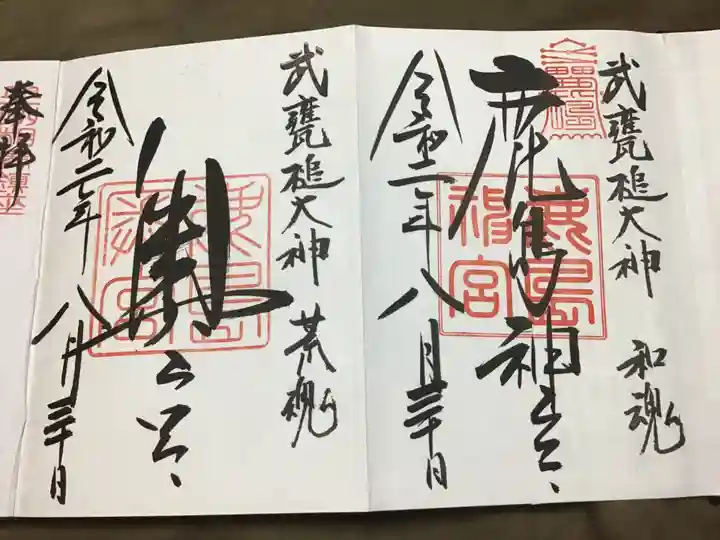 武甕槌大神 和魂
鹿島神宮
鹿島神宮
令和二年八月三十日
武甕槌大神 荒魂
奥宮
鹿島神宮
令和二年八月三十日
奉拝